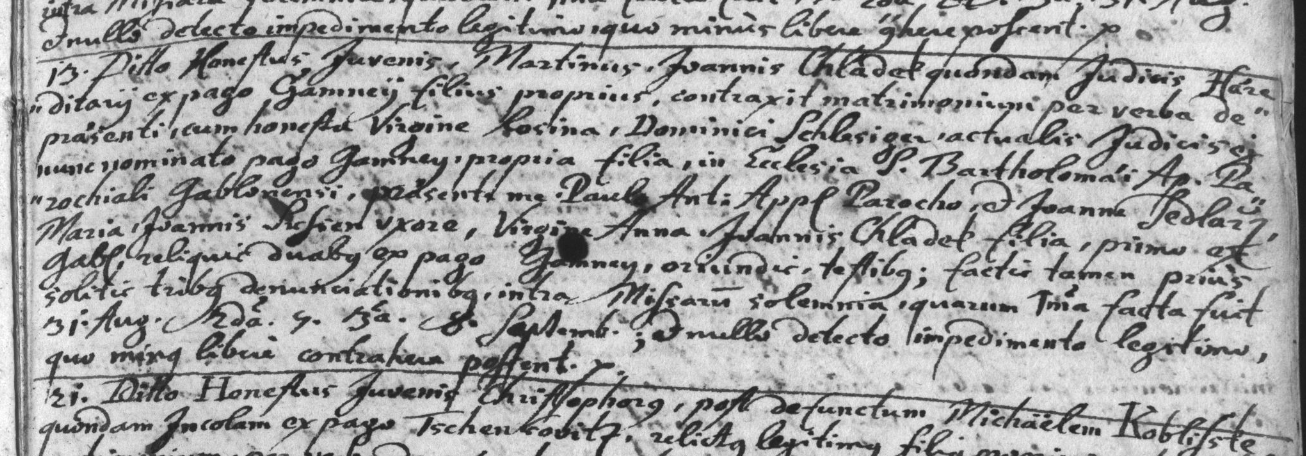 intra Missarum
& nullo detecto impedimento legitimo, quo minùs liberè ghere possent. p
13. Ditto Honestus Juvenis, Martinus, Joannis Chládek quondam Judicis Hære
"ditarij ex pago Gamneÿ filius proprius, contraxit matrimonium per verba de"
præsenti, cum honesta Virgine Rosina, Dominici Schlesiger, actualis Judicis ej
nunc nominato pago Gamney, propria filia, in Ecclesia S. Bartholomæi Ap. Pa
"rochiali Gablonensi, præsente me Paulo Ant: Appl Parocho, & Joanne Pedlarz,
Maria, Joannis uxore, Virgine Anna Joannis Chládek filia, primo ex
Gabl, reliquis duabg ex pago Gamney, oriundis, testibg; factis tamen prius
solitis tribg denunciationibg, intra Missarū solemnia, quarum 1ma facta fuit
31. Aug. 2da. 7. 3a. 8. Septemb., & nullo detecto impedimento legitimo,
quo ming liberè contrahere possent. p.
21. Ditto Honestus Juvenis Christophorg, post defunctum Michaëlem Kobliste
quondam Incolam ex pago Tschenkovitz, relictg legitimg filig